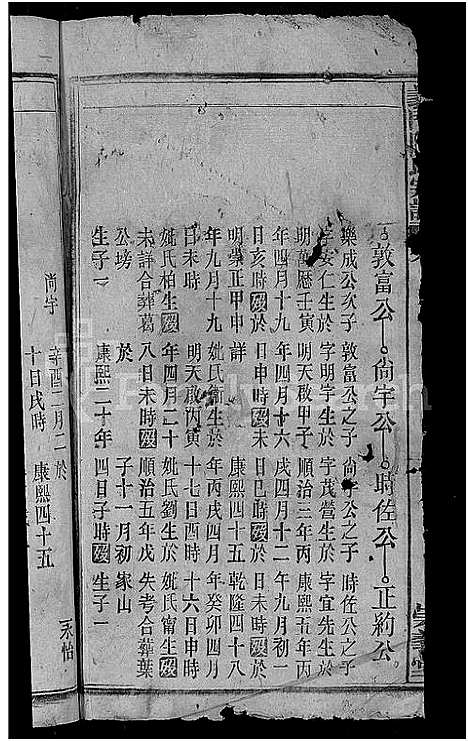 敦富公○尙宇公○時佐公○正約公
樂成公次子 敦富公之子 尙宇公之子 時佐公之子
字安仁生於 字明宇生於 字茂營生於 字宜先生於
明萬曆壬寅 明天啟甲子 順治三年丙 康熙五年丙
年四月十九 年四月十六 戌四月十二 年九月初一
日亥時歿於 日申時歿未 日巳時歿於 日未時歿於
明崇正甲申 詳 康熙四十五 乾隆四十八
年九月十九 妣氏衞生於 年丙戌四月 年癸卯四月
日未時 明天啟丙寅 十七日酉時 十六日申時
妣氏柏生歿 年四月二十 妣氏劉生於 妣氏甯生歿
未詳合葬葛 八日未時歿 順治五年戊 失考合葬葉
公塝 於 子十一月初 家山
生子一 康熙二十年 四日子時歿 生子一
尚宇 辛酉二月二 於 永怡
十日戌時 康熙四十五